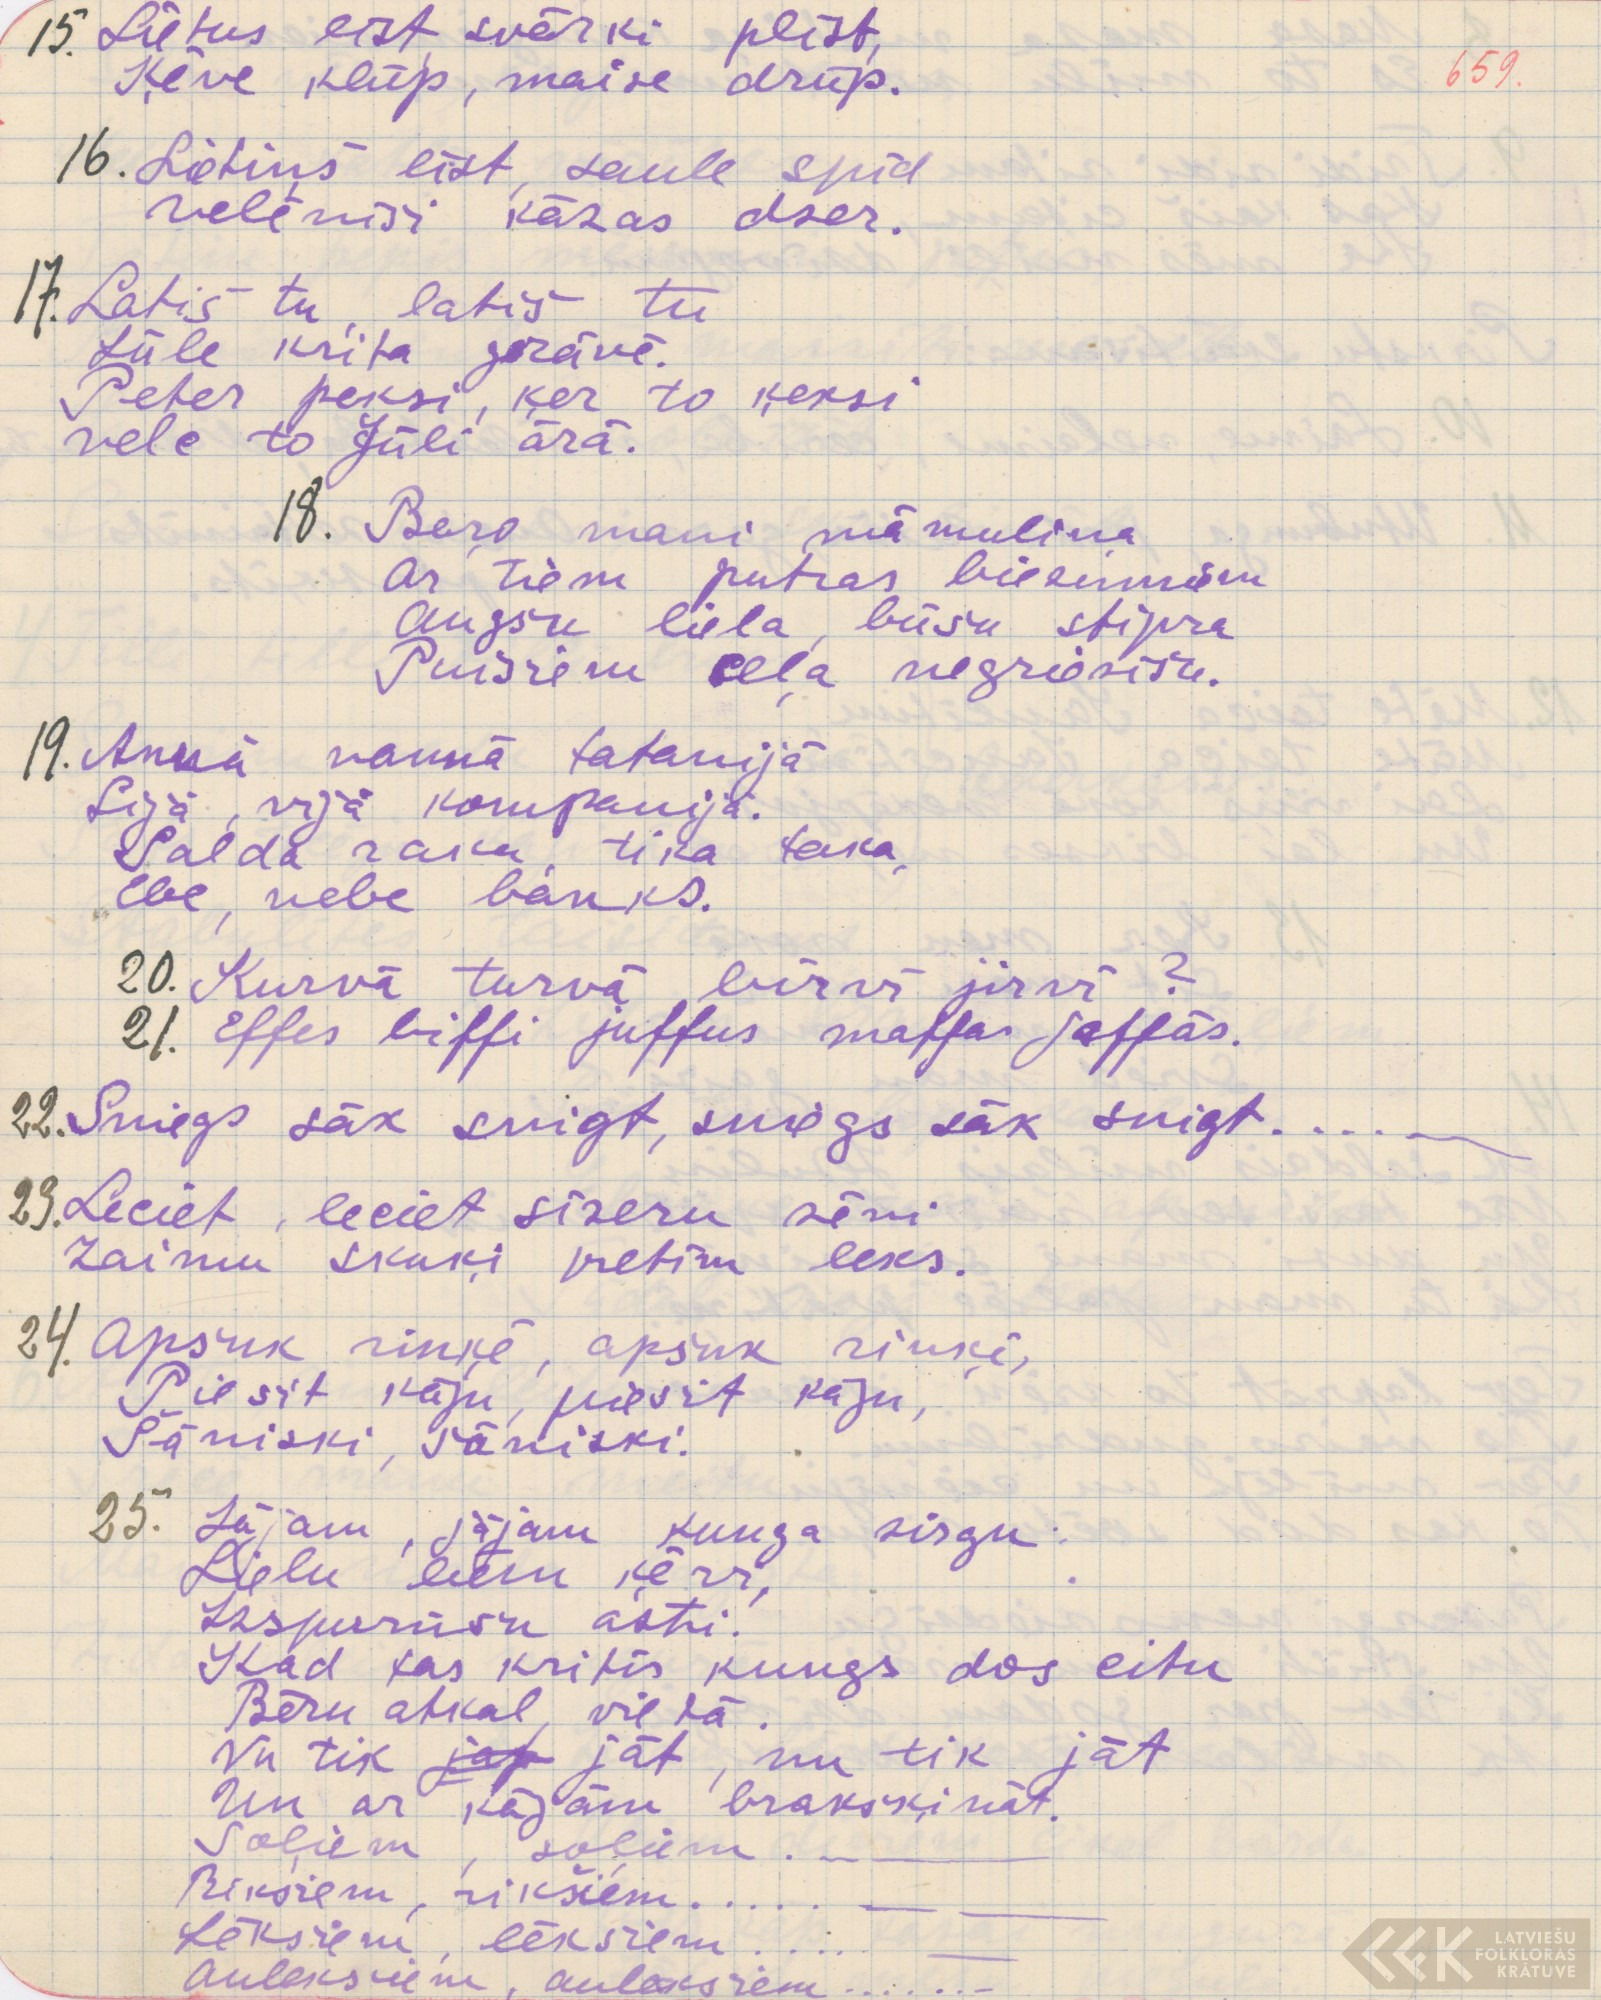 659.
15. Lietus līst, svārki plīst,
Ķēve klūp, maise drūp.
16. Lietiņš līst, saule spīd
velēniši kāzas dzer.
17. Latiš tu, latiš tu
Jūle krita grāvē.
Peter peksi, ķer to ķeksi
velc to Jūli ārā.
18. Baŗo mani māmuliņa
Ar tiem putras biezumiem
Augšu liela, būšu stipra
Puišiem ceļa negriezīšu.
19. Annā vannā tatanijā
Sijā, vijā kompanijā.
Salda raka, tika taka,
Ebe, nebe bānks.
20. Kurvā turvā birvi jirvi?
21. Effes biffi juffus maffas jaffās.
22. Sniegs sāk snigt, sniegs sāk snigt....
23. Leciet, leciet sizeru zēni
Zaimu skuķi pretim leks.
24. Apšuk riņķē, apšuk riņķi,
Piesit kāju, piesit kāju,
Sāniski, sāniski.
25. Jājam, jājam kunga zirgu.
Lielu lēzu ķēvi,
Izspurušu asti.
Kad tas kritīs kungs dos citu
Bēru atkal, vietā.
Nu tik jāt, nu tik jāt
Un ar kājām brakšķināt.
Soļiem, soļiem.
Rikšiem, rikšiem.....
Lēkšiem, lēkšiem.....
Aulekšiem, aulekšiem.......
LATVIEŠU
FOLKLORAS
KRĀTUVE